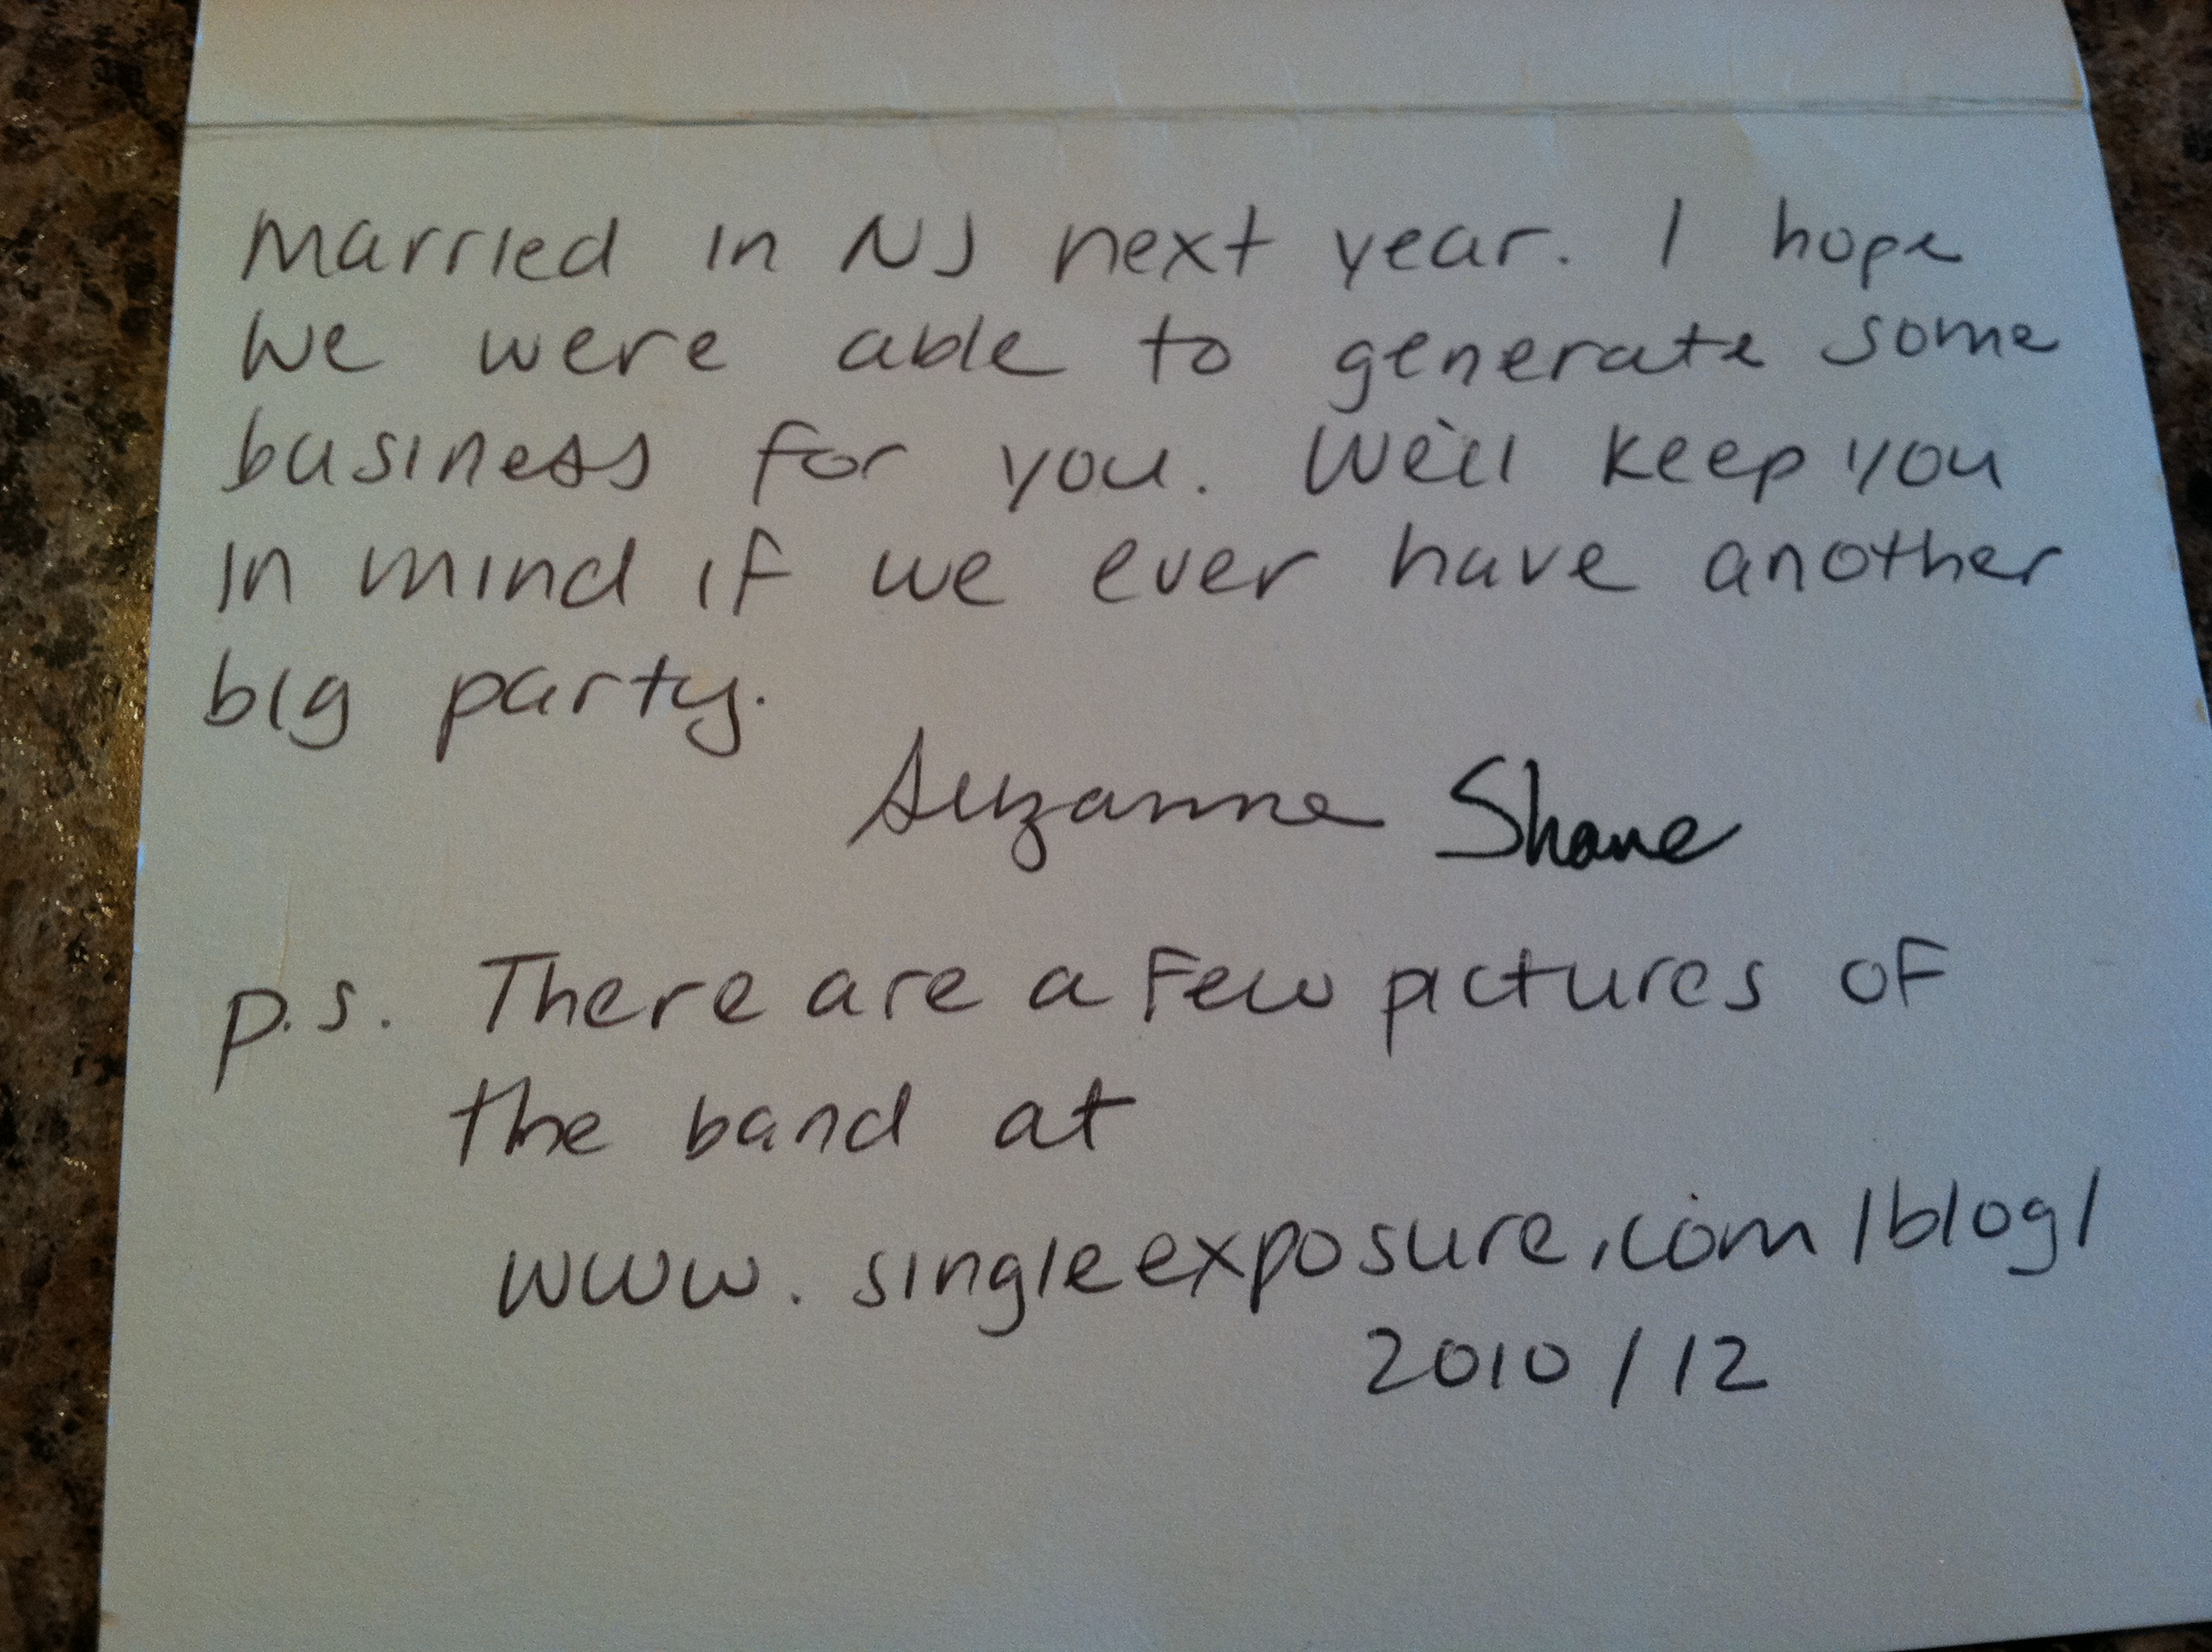 married in NJ next year. I hope
we were able to generate some
business for you. We'll keep you
in mind if we ever have another
big party.
Suzanne Shane
p.s. There are a few pictures of
the band at
www.singleexposure.com/blog/
2010/12